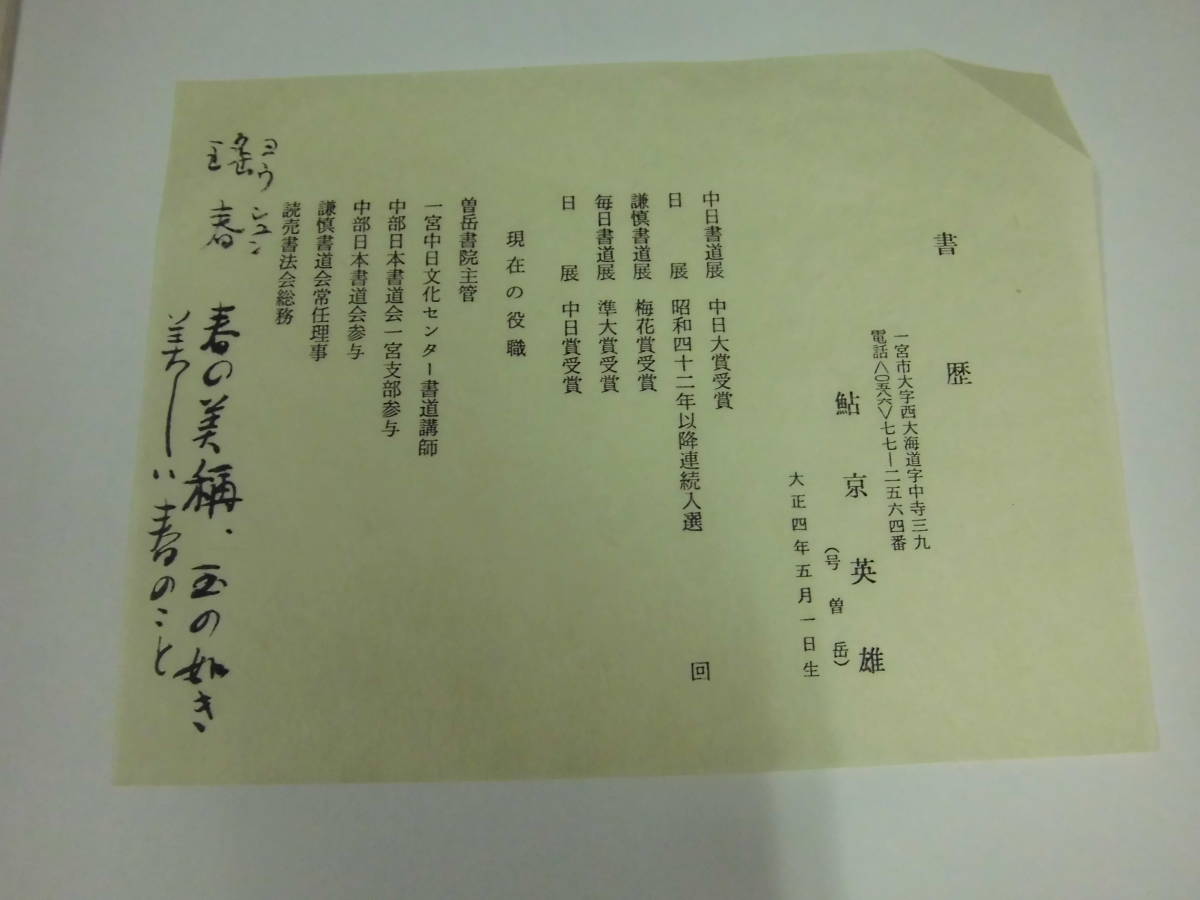 書歴
一宮市大字西大海道字中寺三九
電話〈〇五八六〉七七―二五六四番
鮎京英雄
(号曽岳)
大正四年五月一日生
中日書道展 中日大賞受賞
日展 昭和四十二年以降連続入選 回
謙慎書道展 梅花賞受賞
毎日書道展 準大賞受賞
日展 中日賞受賞
現在の役職
曽岳書院主管
一宮中日文化センター書道講師
中部日本書道会一宮支部参与
中部日本書道会参与
謙慎書道会常任理事
読売書法会総務
ヨウ シュン
瑤春 春の美稱、玉の如き
美しい春のこと